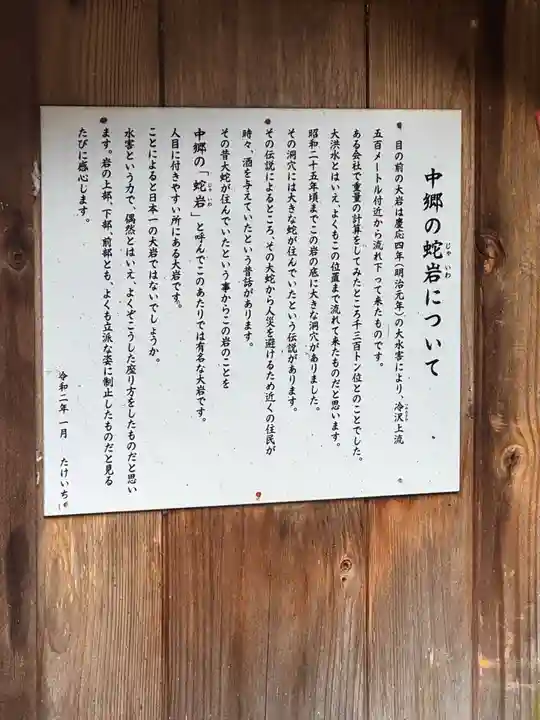 中郷の蛇岩について
目の前の大岩は慶応四年(明治元年)の大水害により、冷沢上流
五百メートル付近から流れ下って来たものです。
ある会社で重量の計算をしてみたところ千三百トン位とのことでした。
大洪水とはいえ、よくもこの位置まで流れて来たものだと思います。
昭和二十五年頃までこの岩の底に大きな洞穴がありました。
その洞穴には大きな蛇が住んでいたという伝説があります。
その伝説によるところ、その大蛇から人災を避けるため近くの住民が
時々、酒を与えていたという昔話があります。
その昔大蛇が住んでいたという事からこの岩のことを
中郷の「蛇岩」と呼んでこのあたりでは有名な大岩です。
人目に付きやすい所にある大岩です。
ことによると日本一の大岩ではないでしょうか。
水害という力で、偶然とはいえ、よくぞこうした座り方をしたものだと思い
ます。岩の上部、下部、前部とも、よくも立派な姿に制止したものだと見る
たびに感心します。
令和二年一月 たけいち